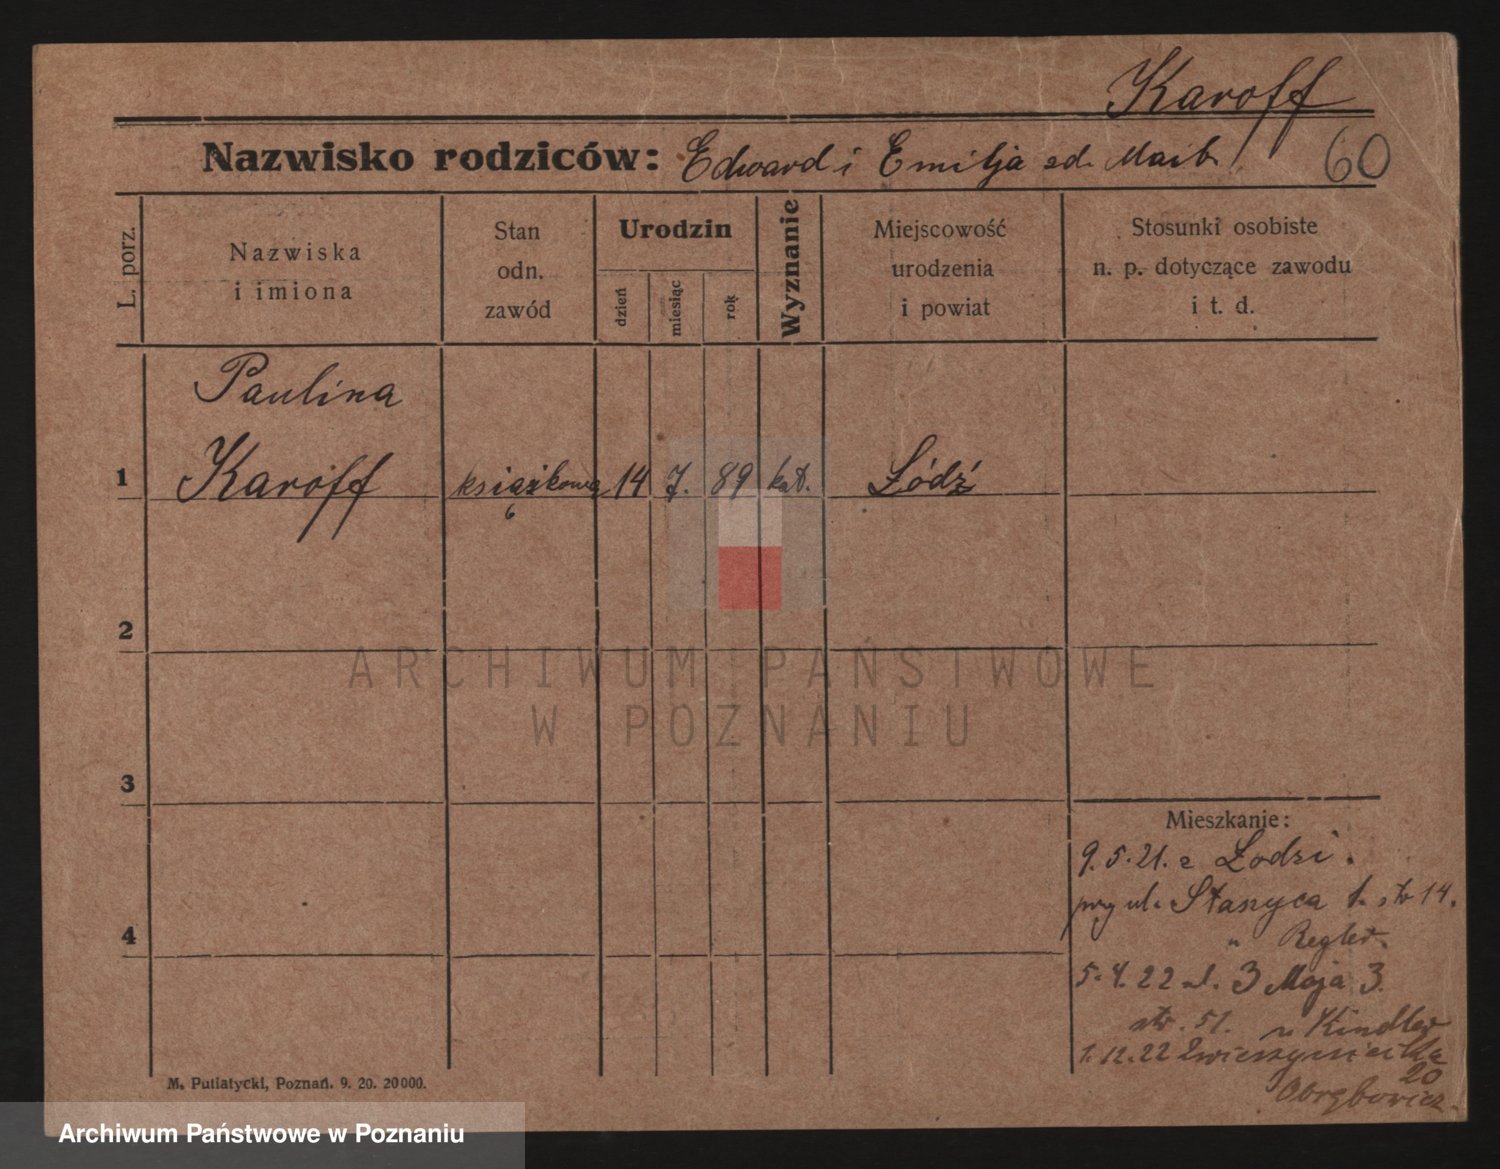 Karoff
Nazwisko rodziców: Edward i Emilja zd. Maib
60
L. porz.
Nazwiska
i imiona
Stan
odn.
zawód
Urodzin
dzień
miesiąc
rok
Wyznanie
Miejscowość
urodzenia
i powiat
Stosunki osobiste
n. p. dotyczące zawodu
i t. d.
Paulina
1 Karoff książkowa 14 7. 89 kat. Łódź
2
3
4
Mieszkanie:
9.5.21. z Łodzi.
przy ul. Staszyca 1. str 14.
" Regler.
5.4.22 ul. 3 Maja 3.
str. 51. u Kindler
1.12.22 Zwierzyniecka
20
Obrębowicz
M. Putiatycki, Poznań. 9. 20. 20000.
ARCHIWUM PAŃSTWOWE
W POZNANIU
Archiwum Państwowe w Poznaniu